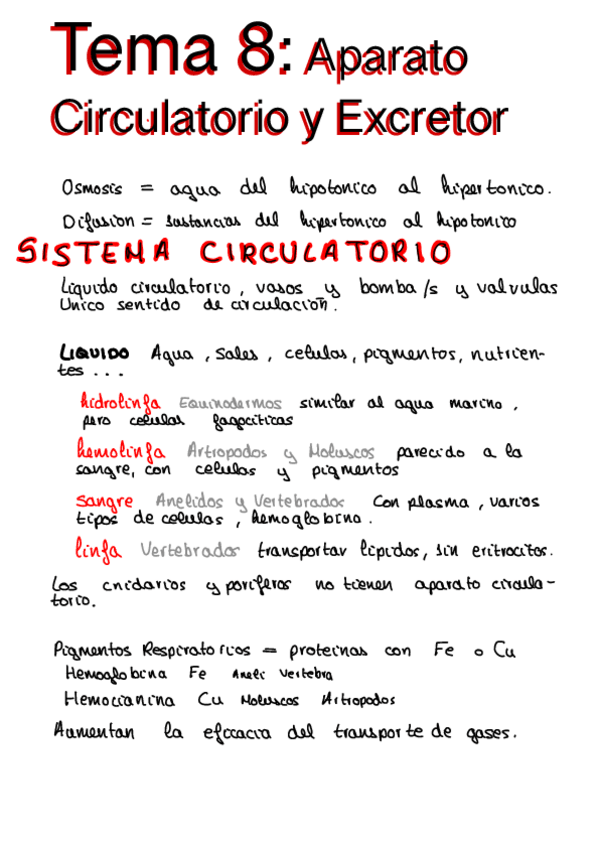 Tema 8: Aparato
Circulatorio y Excretor
Osmosis = agua del hipotonico al hipertonico.
Difusion = sustancias del hipertonico al hipotonico
SISTEMA CIRCULATORIO
Liquido circulatorio, vasos y bomba/s y valvulas
Unico sentido de circulacion.
LIQUIDO Agua, sales, celulas, pigmentos, nutrien-
tes ...
hidrolinfa Equinodermos similar al agua marino,
pero celulas fagociticas
hemolinfa Artropodos y Moluscos parecido a la
sangre, con celulas y pigmentos
sangre Anelidos y Vertebrados Con plasma, varios
tipos de celulas, hemoglobina.
linfa Vertebrados transportar lipidos, sin eritrocitos.
Los cnidarios y poriferos no tienen aparato circula-
torio.
Pigmentos Respiratorios = proteinas con Fe o Cu
Hemoglobina Fe Aneli Vertebra
Hemocianina Cu Moluscos Artropodos
Aumentan la eficacia del transporte de gases.